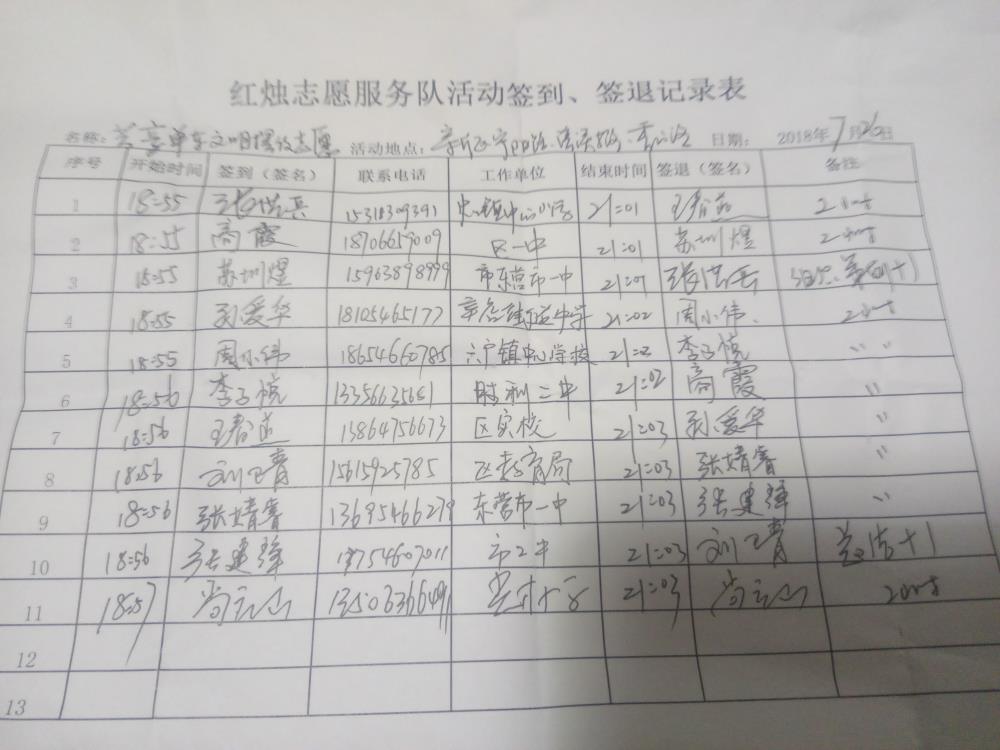 红烛志愿服务队活动签到、签退记录表
名称: 共享单车文明摆放志愿 活动地点: 日期: 2018年7月26日
序号 开始时间 签到（签名） 联系电话 工作单位 结束时间 签退（签名） 备注
1 18:55 张洪兵 15318309391 21:01
2 18:55 高霞 18706659009 区一中 21:01 苏圳煜
3 18:55 苏圳煜 15963898999 市东营市一中 21:01 张洪兵
4 18:55 孙爱华 18105465177 辛店街道中学 21:02 周小伟
5 18:55 周小伟 18654660785 六户镇中心学校 21:02 李子悦 〃
6 18:56 李子悦 13356635651 胜利二中 21:02 高霞 〃
7 18:56 13864756673 区实校 21:03 孙爱华 〃
8 18:56 刘卫青 15615925785 区教育局 21:03 张婧睿 〃
9 18:56 张婧睿 13695466279 东营市一中 21:03 张建强 〃
10 18:56 张建强 18754607011 市二中 21:03 刘卫青
11 18:57 尚云山 21:03 尚云山
12
13